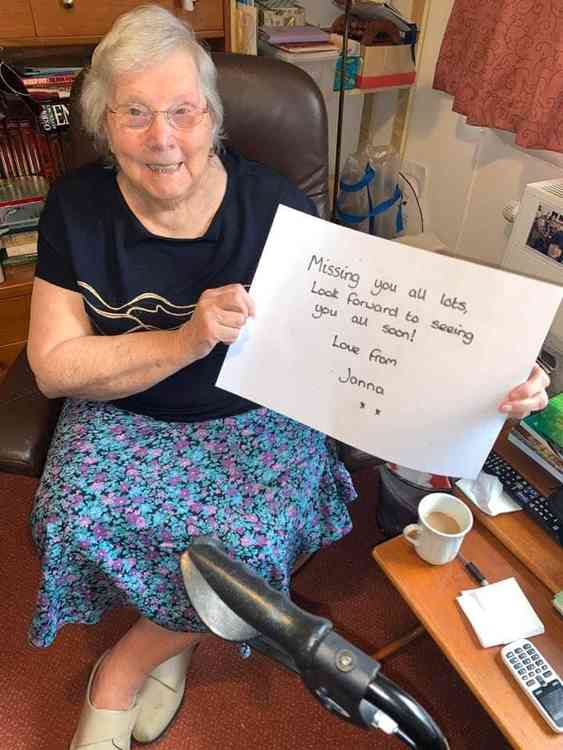 Missing you all lots,
Look forward to seeing
you all soon!
Love from
Janna
* *